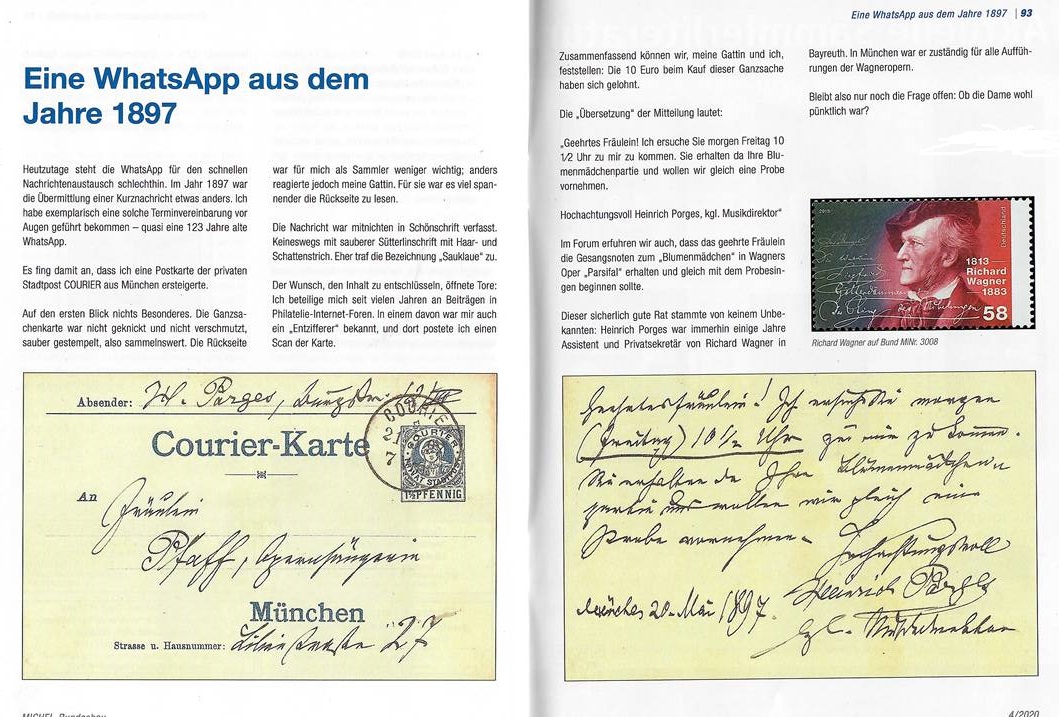 Eine WhatsApp aus dem
Jahre 1897
Heutzutage steht die WhatsApp für den schnellen
Nachrichtenaustausch schlechthin. Im Jahr 1897 war
die Übermittlung einer Kurznachricht etwas anders. Ich
habe exemplarisch eine solche Terminvereinbarung vor
Augen geführt bekommen – quasi eine 123 Jahre alte
WhatsApp.
Es fing damit an, dass ich eine Postkarte der privaten
Stadtpost COURIER aus München ersteigerte.
Auf den ersten Blick nichts Besonderes. Die Ganzsa-
chenkarte war nicht geknickt und nicht verschmutzt,
sauber gestempelt, also sammelnswert. Die Rückseite
war für mich als Sammler weniger wichtig; anders
reagierte jedoch meine Gattin. Für sie war es viel span-
nender die Rückseite zu lesen.
Die Nachricht war mitnichten in Schönschrift verfasst.
Keineswegs mit sauberer Sütterlinschrift mit Haar- und
Schattenstrich. Eher traf die Bezeichnung „Sauklaue“ zu.
Der Wunsch, den Inhalt zu entschlüsseln, öffnete Tore:
Ich beteilige mich seit vielen Jahren an Beiträgen in
Philatelie-Internet-Foren. In einem davon war mir auch
ein „Entzifferer“ bekannt, und dort postete ich einen
Scan der Karte.
Absender: H. Porges,
COURIER
Courier-Karte
COURIER
PRIVAT STADTPOST
1½ PFENNIG
An
Fräulein
Pfaff, Opernsängerin
München
Strasse u. Hausnummer: 27
MICHEL-Rundschau
Eine WhatsApp aus dem Jahre 1897 | 93
Zusammenfassend können wir, meine Gattin und ich,
feststellen: Die 10 Euro beim Kauf dieser Ganzsache
haben sich gelohnt.
Die „Übersetzung“ der Mitteilung lautet:
„Geehrtes Fräulein! Ich ersuche Sie morgen Freitag 10
1/2 Uhr zu mir zu kommen. Sie erhalten da Ihre Blu-
menmädchenpartie und wollen wir gleich eine Probe
vornehmen.
Hochachtungsvoll Heinrich Porges, kgl. Musikdirektor“
Im Forum erfuhren wir auch, dass das geehrte Fräulein
die Gesangsnoten zum „Blumenmädchen“ in Wagners
Oper „Parsifal“ erhalten und gleich mit dem Probesin-
gen beginnen sollte.
Dieser sicherlich gute Rat stammte von keinem Unbe-
kannten: Heinrich Porges war immerhin einige Jahre
Assistent und Privatsekretär von Richard Wagner in
Bayreuth. In München war er zuständig für alle Auffüh-
rungen der Wagneropern.
Bleibt also nur noch die Frage offen: Ob die Dame wohl
pünktlich war?
Deutschland
1813
Richard
Wagner
1883
58
Richard Wagner auf Bund MiNr. 3008
Geehrtes Fräulein! Ich ersuche Sie morgen
(Freitag) 10 ½ Uhr zu mir zu kommen.
Sie erhalten da Ihre Blumenmädchen
partie und wollen wir gleich eine
Probe vornehmen.
Hochachtungsvoll
Heinrich Porges
München 20. Mai 1897.
kgl. Musikdirektor
4/2020